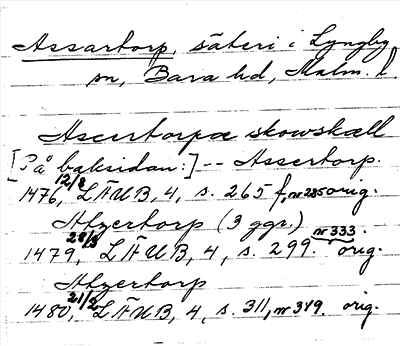 Assartorp, säteri i Lyngby
sn, Bara hd, Malm. l
Ascertorpæ skowskæll
[På baksidan:] -- Assertorp.
1476, 12/8 LÄUB, 4, s. 265 f, nr 285 orig.
Atzertorp (3 ggr.)
1479, 28/3 LÄUB, 4, s. 299. nr 333. orig.
Atzertorp
1480, 21/2 LÄUB, 4, s. 311, nr 349. orig.